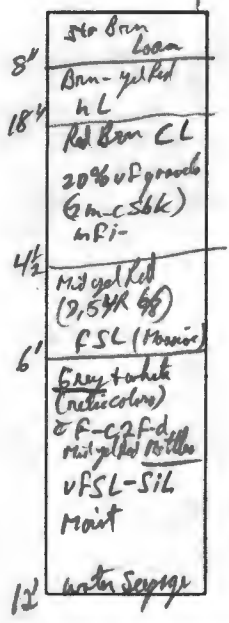 Str Brn
Loam
8"
Brn-yel Red
hL
18"
Red Brn CL
20% vf gravels
(2m-csbk)
mfi-
4½
Mid yel Red
(7,5YR 6/8)
FSL (Massive)
6'
Grey + white
(reticolors)
c F-c, 2F-d
Mid yel Red Mottles
vFSL-SiL
Moist
water Seepage
12'